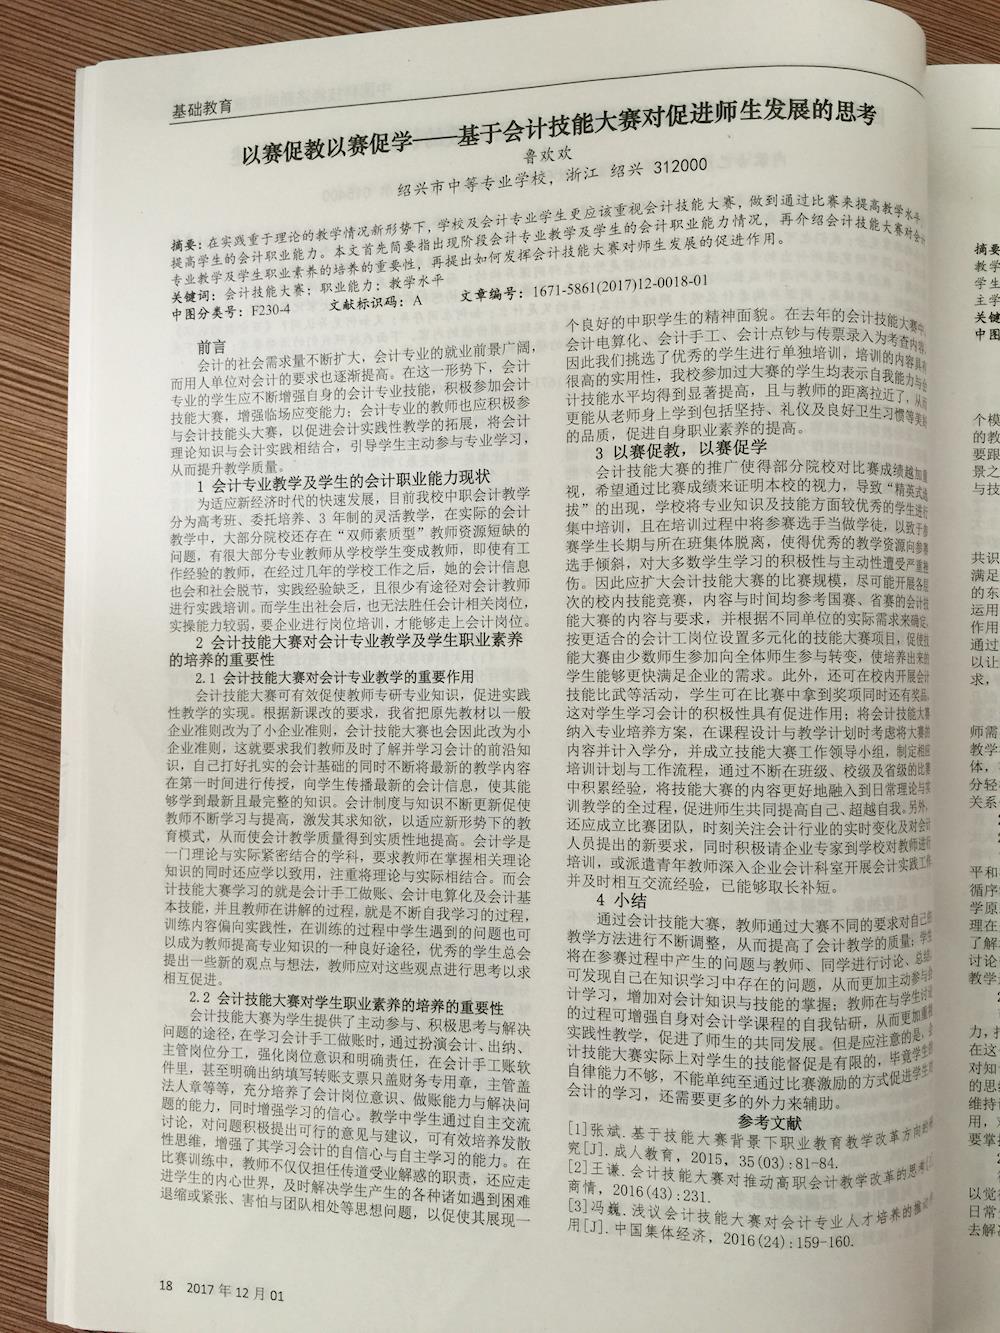 基础教育
以赛促教以赛促学——基于会计技能大赛对促进师生发展的思考
鲁欢欢
绍兴市中等专业学校，浙江 绍兴 312000
摘要：在实践重于理论的教学情况新形势下，学校及会计专业学生更应该重视会计技能大赛，做到通过比赛来提高教学水平
提高学生的会计职业能力。本文首先简要指出现阶段会计专业教学及学生的会计职业能力情况，再介绍会计技能大赛对会计
专业教学及学生职业素养的培养的重要性，再提出如何发挥会计技能大赛对师生发展的促进作用。
关键词：会计技能大赛；职业能力；教学水平
中图分类号：F230-4 文献标识码：A 文章编号：1671-5861(2017)12-0018-01
前言
会计的社会需求量不断扩大，会计专业的就业前景广阔，
而用人单位对会计的要求也逐渐提高。在这一形势下，会计
专业的学生应不断增强自身的会计专业技能，积极参加会计
技能大赛，增强临场应变能力；会计专业的教师也应积极参
与会计技能头大赛，以促进会计实践性教学的拓展，将会计
理论知识与会计实践相结合，引导学生主动参与专业学习，
从而提升教学质量。
1 会计专业教学及学生的会计职业能力现状
为适应新经济时代的快速发展，目前我校中职会计教学
分为高考班、委托培养、3 年制的灵活教学，在实际的会计
教学中，大部分院校还存在“双师素质型”教师资源短缺的
问题，有很大部分专业教师从学校学生变成教师，即使有工
作经验的教师，在经过几年的学校工作之后，她的会计信息
也会和社会脱节，实践经验缺乏，且很少有途径对会计教师
进行实践培训。而学生出社会后，也无法胜任会计相关岗位，
实操能力较弱，要企业进行岗位培训，才能够走上会计岗位。
2 会计技能大赛对会计专业教学及学生职业素养
的培养的重要性
2.1 会计技能大赛对会计专业教学的重要作用
会计技能大赛可有效促使教师专研专业知识，促进实践
性教学的实现。根据新课改的要求，我省把原先教材以一般
企业准则改为了小企业准则，会计技能大赛也会因此改为小
企业准则，这就要求我们教师及时了解并学习会计的前沿知
识，自己打好扎实的会计基础的同时不断将最新的教学内容
在第一时间进行传授，向学生传播最新的会计信息，使其能
够学到最新且最完整的知识。会计制度与知识不断更新促使
教师不断学习与提高，激发其求知欲，以适应新形势下的教
育模式，从而使会计教学质量得到实质性地提高。会计学是
一门理论与实际紧密结合的学科，要求教师在掌握相关理论
知识的同时还应学以致用，注重将理论与实际相结合。而会
计技能大赛学习的就是会计手工做账、会计电算化及会计基
本技能，并且教师在讲解的过程，就是不断自我学习的过程，
训练内容偏向实践性，在训练的过程中学生遇到的问题也可
以成为教师提高专业知识的一种良好途径，优秀的学生总会
提出一些新的观点与想法，教师应对这些观点进行思考以求
相互促进。
2.2 会计技能大赛对学生职业素养的培养的重要性
会计技能大赛为学生提供了主动参与、积极思考与解决
问题的途径，在学习会计手工做账时，通过扮演会计、出纳、
主管岗位分工，强化岗位意识和明确责任，在会计手工账软
件里，甚至明确出纳填写转账支票只盖财务专用章，主管盖
法人章等等，充分培养了会计岗位意识、做账能力与解决问
题的能力，同时增强学习的信心。教学中学生通过自主交流
讨论，对问题积极提出可行的意见与建议，可有效培养发散
性思维，增强了其学习会计的自信心与自主学习的能力。在
比赛训练中，教师不仅仅担任传道受业解惑的职责，还应走
进学生的内心世界，及时解决学生产生的各种诸如遇到困难
退缩或紧张、害怕与团队相处等思想问题，以促使其展现一
个良好的中职学生的精神面貌。在去年的会计技能大赛中，
会计电算化、会计手工、会计点钞与传票录入为考查内容，
因此我们挑选了优秀的学生进行单独培训，培训的内容具有
很高的实用性，我校参加过大赛的学生均表示自我能力与会
计技能水平均得到显著提高，且与教师的距离拉近了，从而
更能从老师身上学到包括坚持、礼仪及良好卫生习惯等美好
的品质，促进自身职业素养的提高。
3 以赛促教，以赛促学
会计技能大赛的推广使得部分院校对比赛成绩越加重
视，希望通过比赛成绩来证明本校的视力，导致“精英式选
拔”的出现，学校将专业知识及技能方面较优秀的学生进行
集中培训，且在培训过程中将参赛选手当做学徒，以致于参
赛学生长期与所在班集体脱离，使得优秀的教学资源向参赛
选手倾斜，对大多数学生学习的积极性与主动性遭受严重挫
伤。因此应扩大会计技能大赛的比赛规模，尽可能开展各层
次的校内技能竞赛，内容与时间均参考国赛、省赛的会计技
能大赛的内容与要求，并根据不同单位的实际需求来确定，
按更适合的会计工岗位设置多元化的技能大赛项目，促使技
能大赛由少数师生参加向全体师生参与转变，使培养出来的
学生能够更快满足企业的需求。此外，还可在校内开展会计
技能比武等活动，学生可在比赛中拿到奖项同时还有奖品，
这对学生学习会计的积极性具有促进作用；将会计技能大赛
纳入专业培养方案，在课程设计与教学计划时考虑将大赛的
内容并计入学分，并成立技能大赛工作领导小组，制定相应
培训计划与工作流程，通过不断在班级、校级及省级的比赛
中积累经验，将技能大赛的内容更好地融入到日常理论与实
训教学的全过程，促进师生共同提高自己、超越自我。另外，
还应成立比赛团队，时刻关注会计行业的实时变化及对会计
人员提出的新要求，同时积极请企业专家到学校对教师进行
培训，或派遣青年教师深入企业会计科室开展会计实践工作
并及时相互交流经验，已能够取长补短。
4 小结
通过会计技能大赛，教师通过大赛不同的要求对自己的
教学方法进行不断调整，从而提高了会计教学的质量；学生
将在参赛过程中产生的问题与教师、同学进行讨论、总结，
可发现自己在知识学习中存在的问题，从而更加主动参与会
计学习，增加对会计知识与技能的掌握；教师在与学生讨论
的过程可增强自身对会计学课程的自我钻研，从而更加重视
实践性教学，促进了师生的共同发展。但是应注意的是，会
计技能大赛实际上对学生的技能督促是有限的，毕竟学生的
自律能力不够，不能单纯至通过比赛激励的方式促进学生对
会计的学习，还需要更多的外力来辅助。
参考文献
[1]张斌.基于技能大赛背景下职业教育教学改革方向的研
究[J].成人教育，2015，35(03):81-84.
[2]王谦.会计技能大赛对推动高职会计教学改革的思考[J].
商情，2016(43):231.
[3]冯巍.浅议会计技能大赛对会计专业人才培养的推动作
用[J].中国集体经济，2016(24):159-160.
18 2017 年 12 月 01